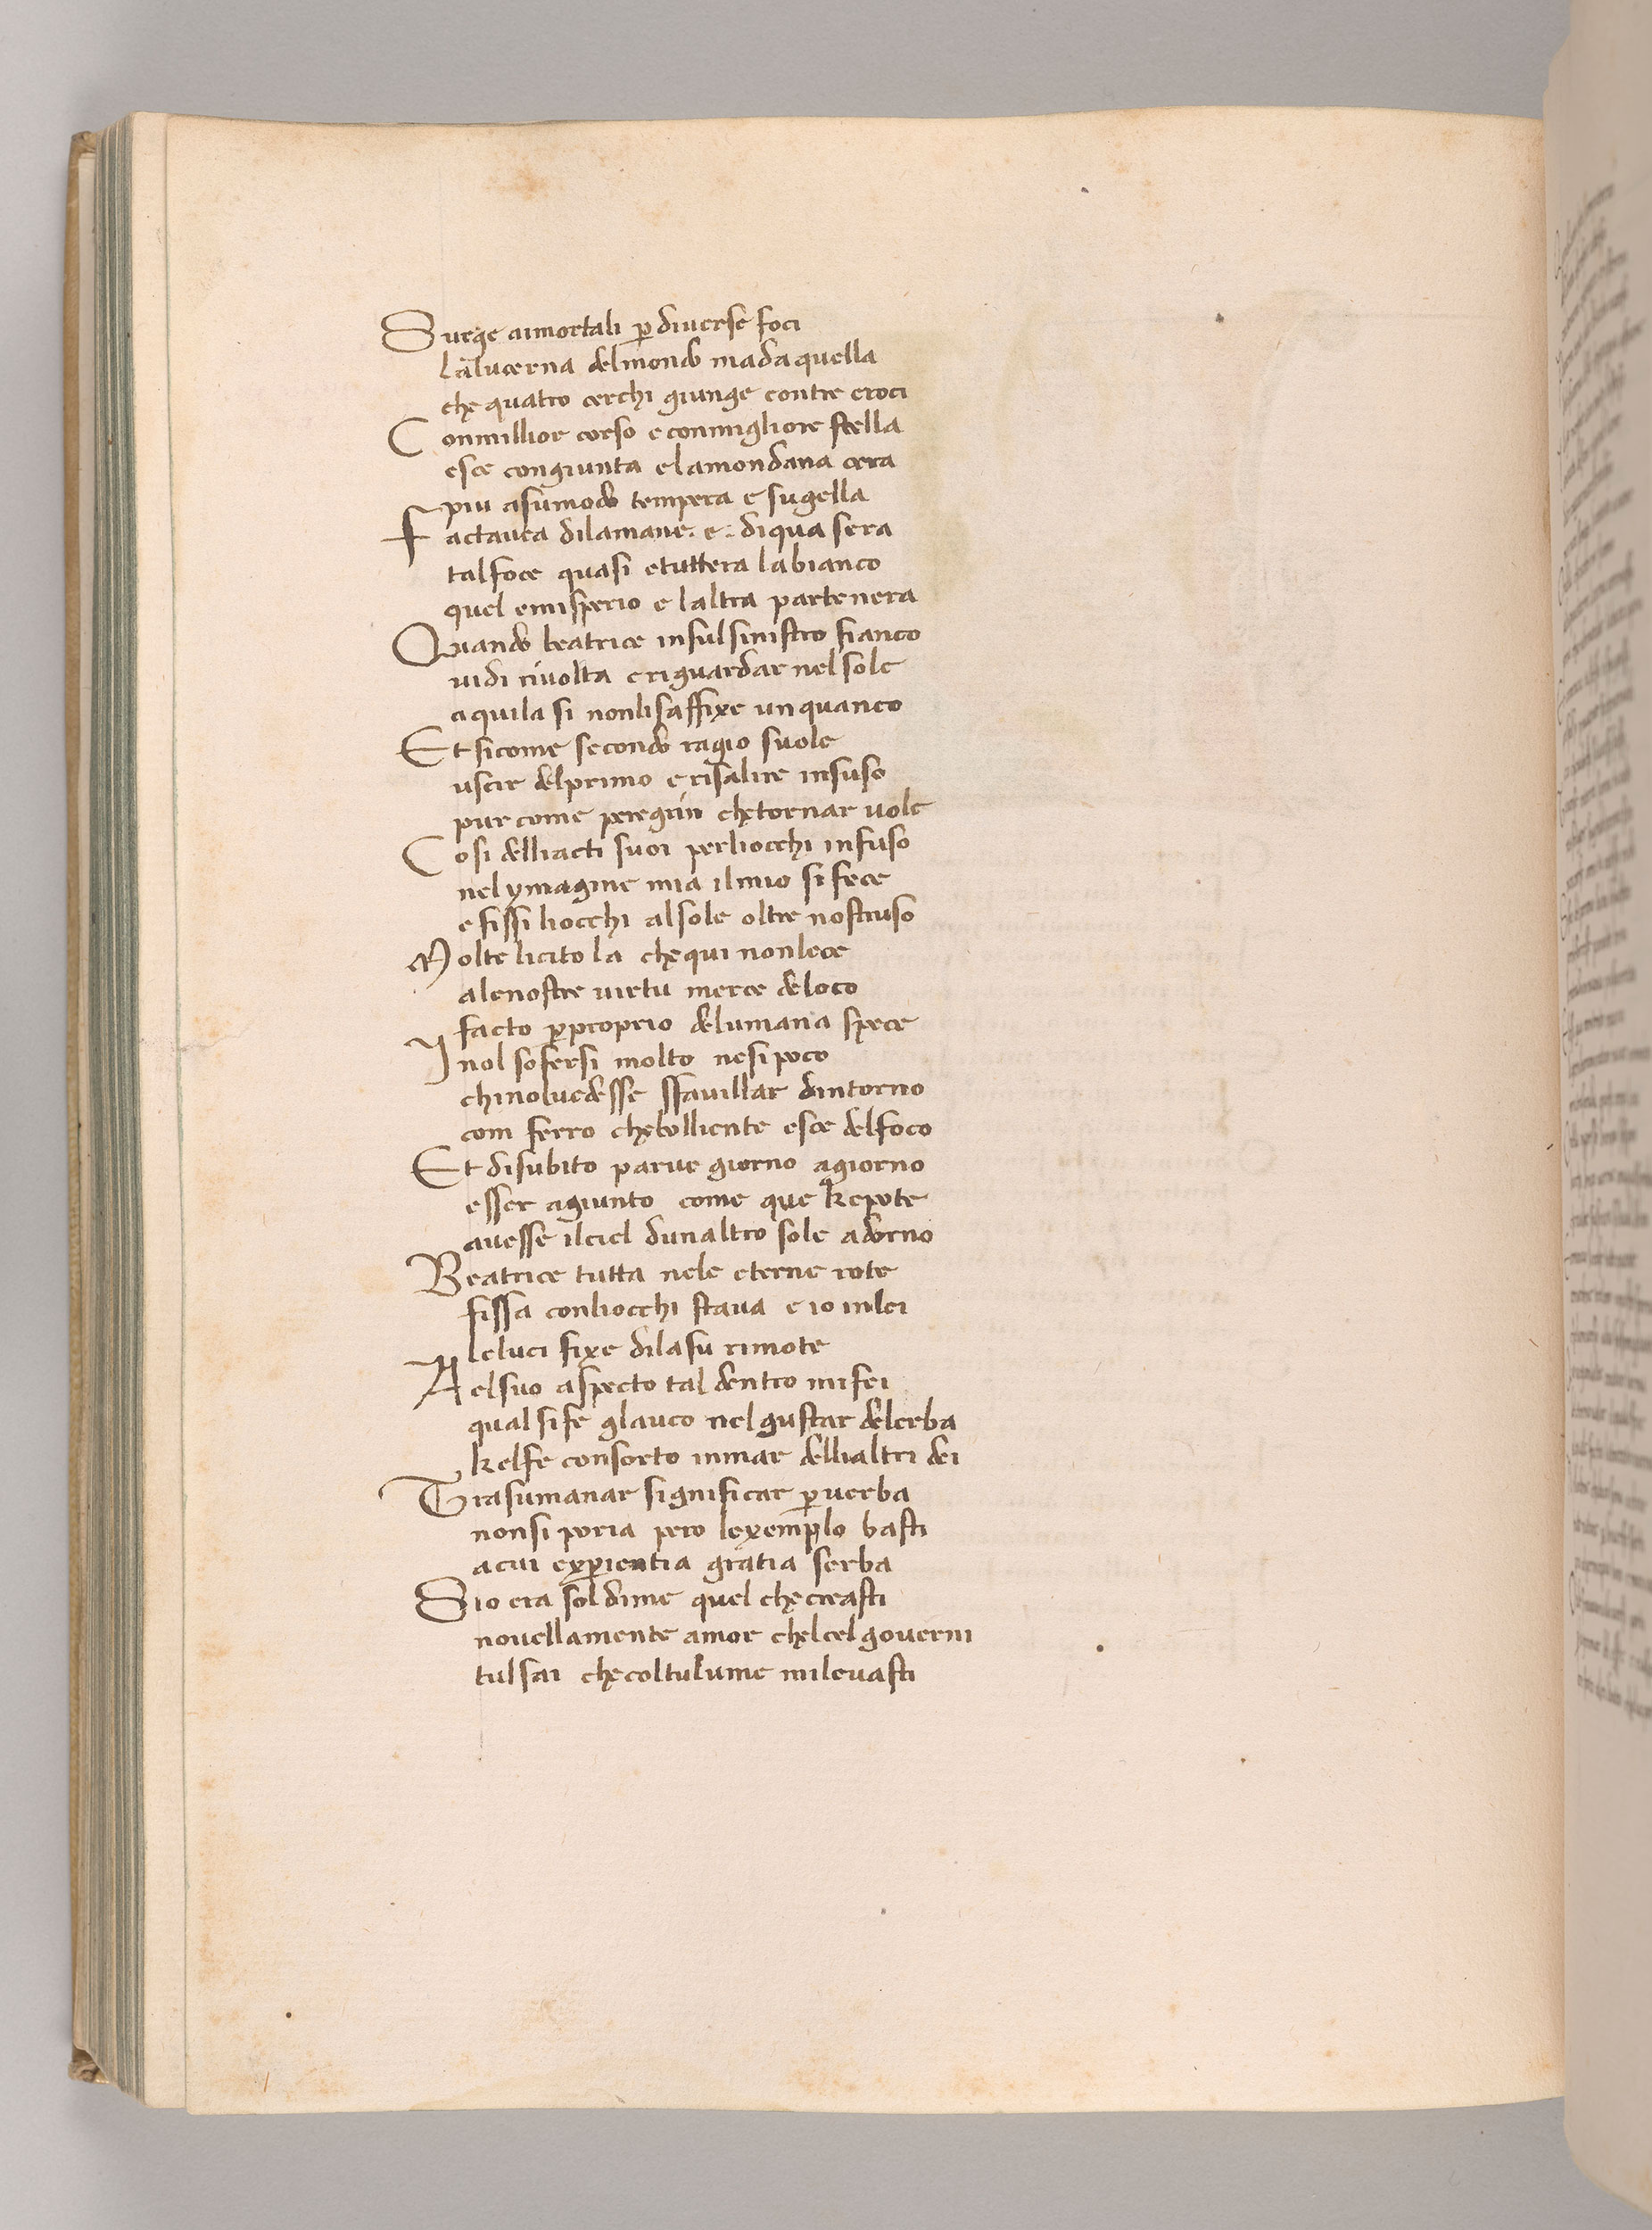 Surge aimortali ꝑ diuerse foci
lalucerna delmondo mada quella
che quatro cerchi giunge contre croci
Conmillior corso e conmigliore stella
esce congiunta e lamondana cera
piu asumodo tempera e sugella
Factauea dilamane. e. diqua sera
tal foce quasi e tuttera la bianco
quel emisperio e laltra parte nera
Quando beatrice insul sinistro fianco
uidi riuolta e riguardar nel sole
aquila si nonli saffixe unquanco
Et sicome secondo ragio suole
uscir delprimo e risalire insuso
pur come peregrin che tornar uole
Cosi delliacti suoi perliocchi infuso
nel ymagine mia ilmio si fece
e fissi liocchi al sole oltre nostruso
Molte licito la che qui nonlece
alenostre uirtu merce deloco
facto ꝑ proprio delumana spece
Inol sofersi molto nesi poco
chi noluedesse sfauillar dintorno
com ferro che bolliente esce delfoco
Et disubito parue giorno agiorno
esser agiunto come que ke pote
auesse ilciel dunaltro sole adorno
Beatrice tutta nele eterne rote
fissa conliocchi staua e io inlei
leluci fixe dilasu rimote
Nelsuo aspecto tal dentro mi fei
qual si fe glauco nel gustar delerba
kelfe consorto inmar dellialtri dei
Trasumanar significar ꝑ uerba
nonsi poria pero lexemplo basti
acui exꝑientia gratia serba
Sio era sol dime quel che creasti
nouellamente amor chelcel gouerni
tulsai che coltulume mi leuasti